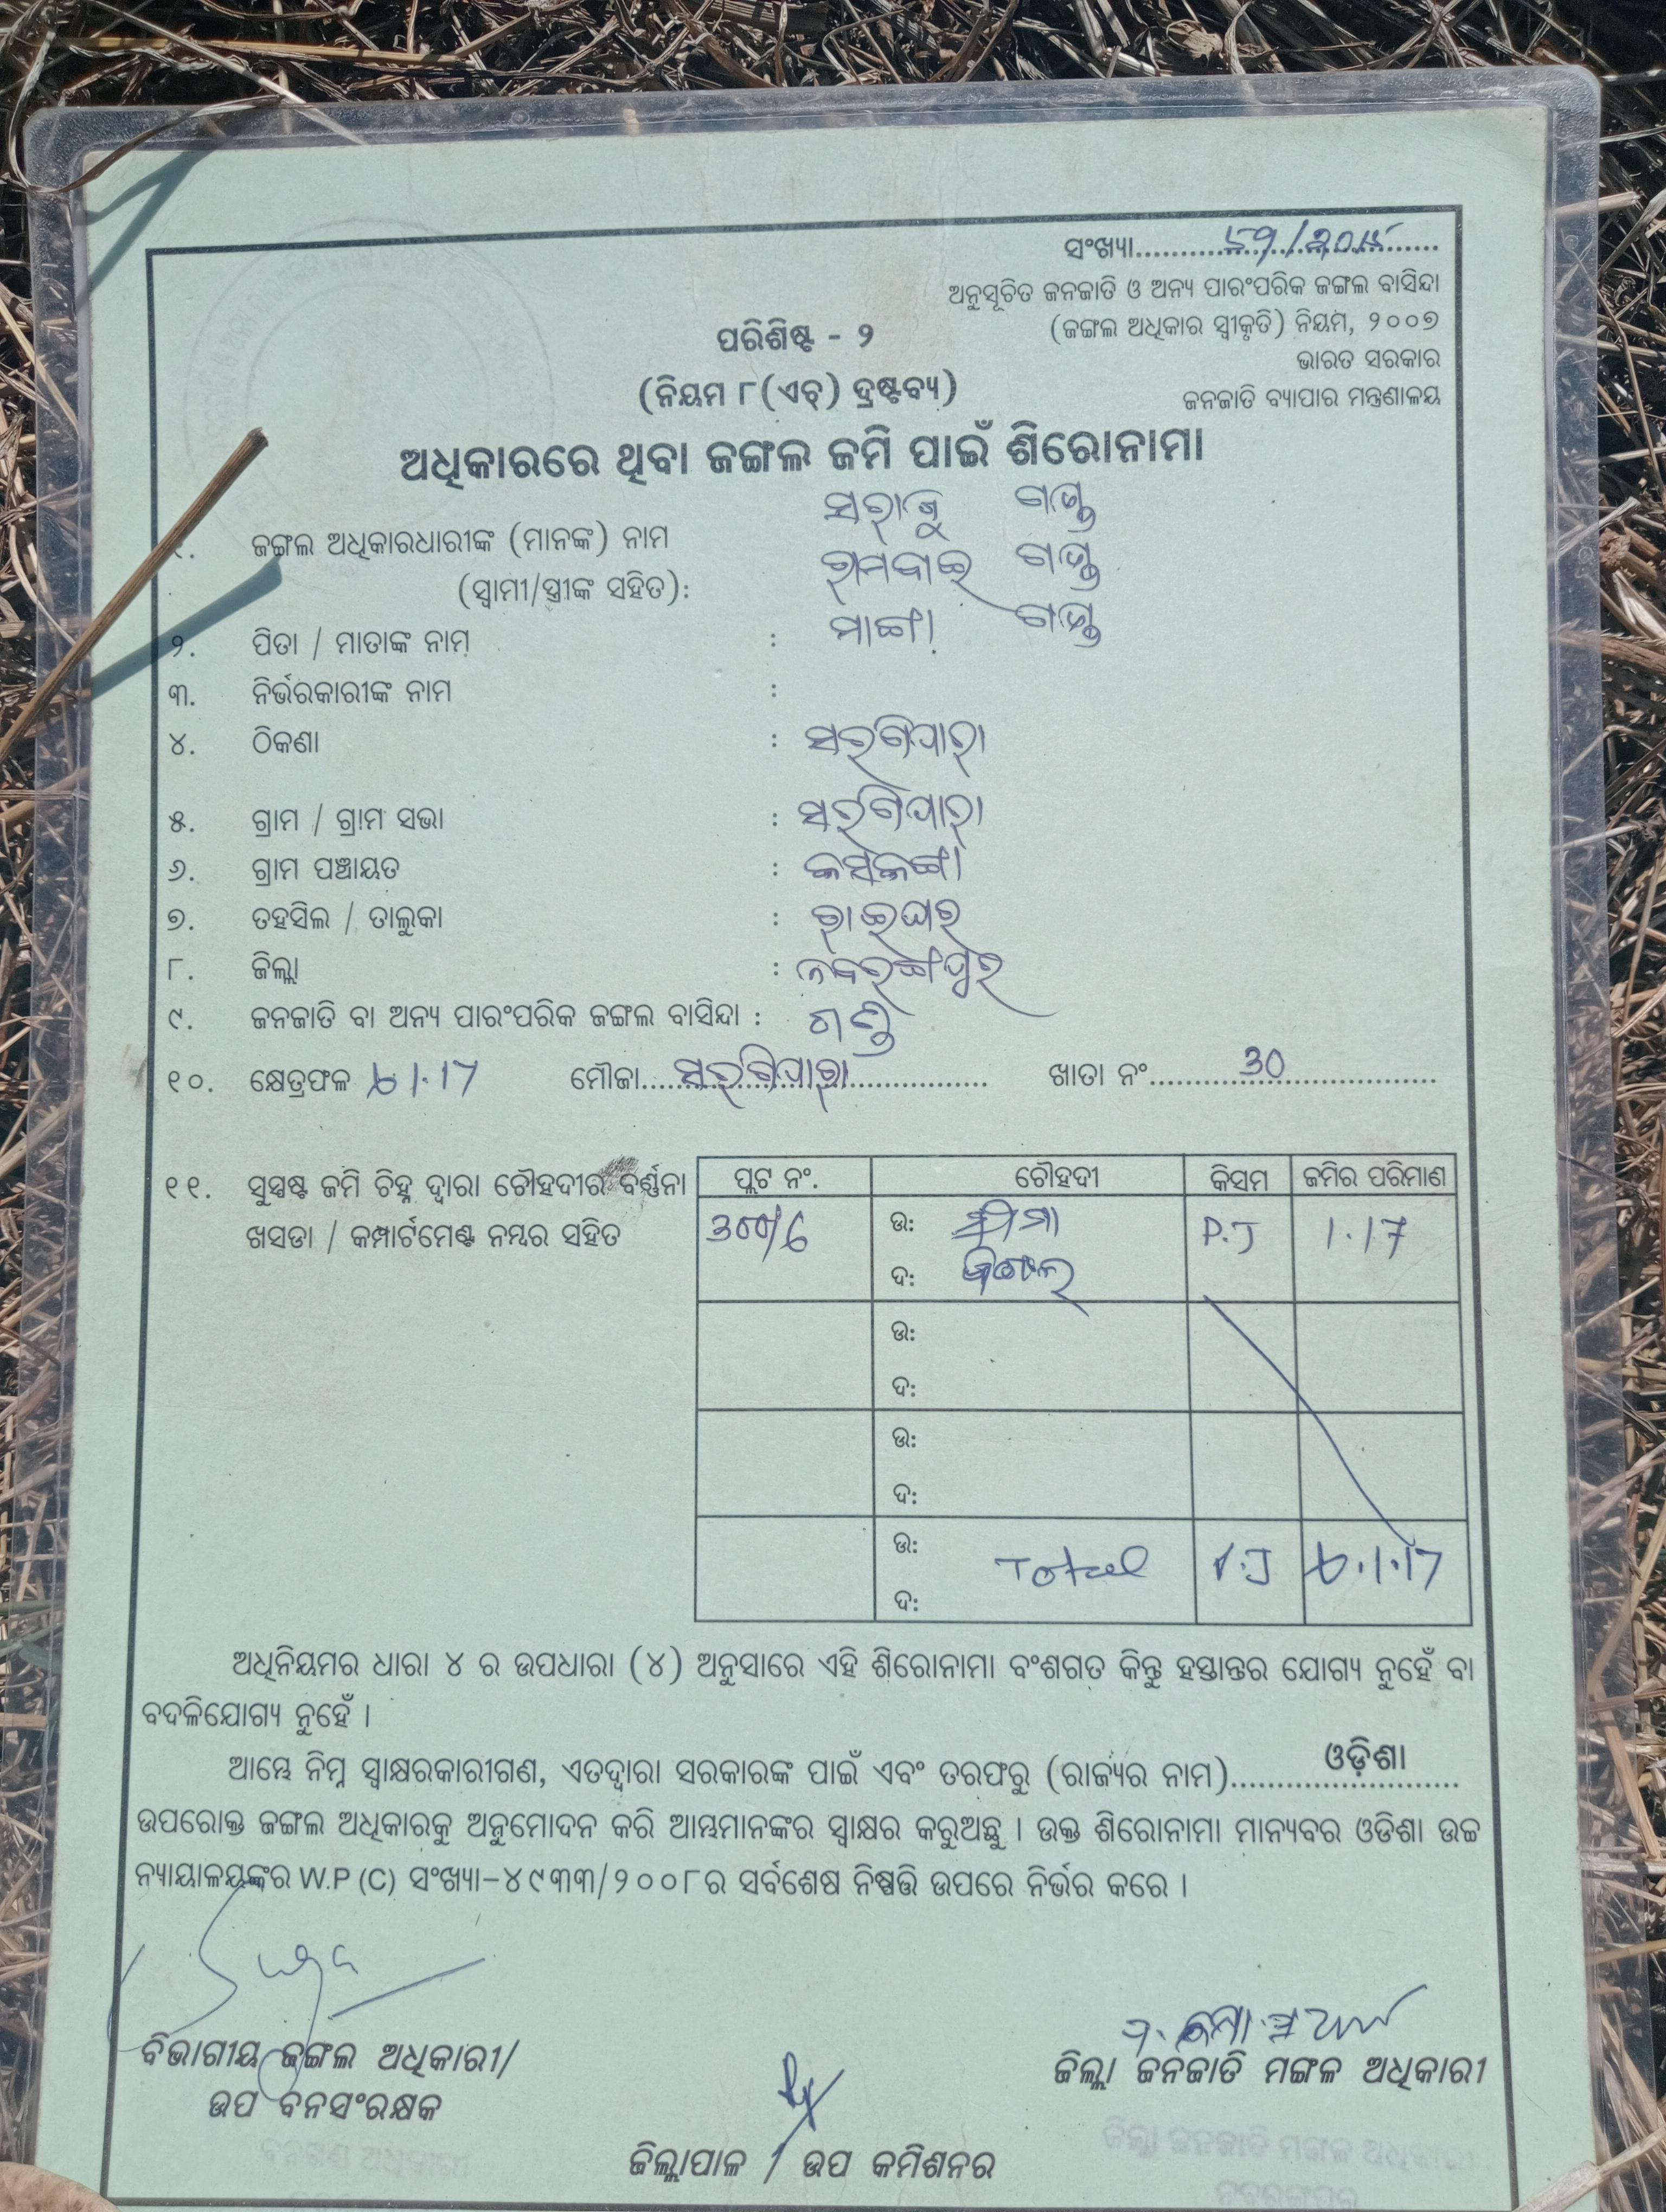 ସଂଖ୍ୟା....................................
ଅନୁସୂଚିତ ଜନଜାତି ଓ ଅନ୍ୟ ପାରଂପରିକ ଜଙ୍ଗଲ ବାସିନ୍ଦା
(ଜଙ୍ଗଲ ଅଧିକାର ସ୍ୱୀକୃତି) ନିୟମ, ୨୦୦୭
ଭାରତ ସରକାର
ଜନଜାତି ବ୍ୟାପାର ମନ୍ତ୍ରଣାଳୟ
ପରିଶିଷ୍ଟ - ୨
(ନିୟମ ୮(ଏଚ୍) ଦ୍ରଷ୍ଟବ୍ୟ)
ଅଧିକାରରେ ଥିବା ଜଙ୍ଗଲ ଜମି ପାଇଁ ଶିରୋନାମା
୧. ଜଙ୍ଗଲ ଅଧିକାରଧାରୀଙ୍କ (ମାନଙ୍କ) ନାମ ଗଣ୍ଡ
(ସ୍ୱାମୀ/ସ୍ତ୍ରୀଙ୍କ ସହିତ): ରାମବାଇ ଗଣ୍ଡ
୨. ପିତା / ମାତାଙ୍କ ନାମ : ଗଣ୍ଡ
୩. ନିର୍ଭରକାରୀଙ୍କ ନାମ :
୪. ଠିକଣା : ସରଗିପାରା
୫. ଗ୍ରାମ / ଗ୍ରାମ ସଭା : ସରଗିପାରା
୬. ଗ୍ରାମ ପଞ୍ଚାୟତ :
୭. ତହସିଲ / ତାଲୁକା : ରାଇଘର
୮. ଜିଲ୍ଲା : ନବରଙ୍ଗପୁର
୯. ଜନଜାତି ବା ଅନ୍ୟ ପାରଂପରିକ ଜଙ୍ଗଲ ବାସିନ୍ଦା : ଗଣ୍ଡ
୧୦. କ୍ଷେତ୍ରଫଳ 1.17 ମୌଜା....ସରଗିପାରା.... ଖାତା ନଂ....30....
୧୧. ସୁସ୍ପଷ୍ଟ ଜମି ଚିହ୍ନ ଦ୍ୱାରା ଚୌହଦୀର ବର୍ଣ୍ଣନା
ଖସଡା / କମ୍ପାର୍ଟମେଣ୍ଟ ନମ୍ବର ସହିତ
ପ୍ଲଟ ନଂ. ଚୌହଦୀ କିସମ ଜମିର ପରିମାଣ
ଉ: ସୀମା P.J 1.17
ଦ: ଜଙ୍ଗଲ
ଉ:
ଦ:
ଉ:
ଦ:
ଉ: Total P.J 1.17
ଦ:
ଅଧିନିୟମର ଧାରା ୪ ର ଉପଧାରା (୪) ଅନୁସାରେ ଏହି ଶିରୋନାମା ବଂଶଗତ କିନ୍ତୁ ହସ୍ତାନ୍ତର ଯୋଗ୍ୟ ନୁହେଁ ବା
ବଦଳିଯୋଗ୍ୟ ନୁହେଁ ।
ଆମ୍ଭେ ନିମ୍ନ ସ୍ୱାକ୍ଷରକାରୀଗଣ, ଏତଦ୍ୱାରା ସରକାରଙ୍କ ପାଇଁ ଏବଂ ତରଫରୁ (ରାଜ୍ୟର ନାମ)....ଓଡ଼ିଶା....
ଉପରୋକ୍ତ ଜଙ୍ଗଲ ଅଧିକାରକୁ ଅନୁମୋଦନ କରି ଆମ୍ଭମାନଙ୍କର ସ୍ୱାକ୍ଷର କରୁଅଛୁ । ଉକ୍ତ ଶିରୋନାମା ମାନ୍ୟବର ଓଡିଶା ଉଚ୍ଚ
ନ୍ୟାୟାଳୟଙ୍କର W.P (C) ସଂଖ୍ୟା-୪୯୩୩/୨୦୦୮ ର ସର୍ବଶେଷ ନିଷ୍ପତ୍ତି ଉପରେ ନିର୍ଭର କରେ ।
ବିଭାଗୀୟ ଜଙ୍ଗଲ ଅଧିକାରୀ/
ଉପ ବନସଂରକ୍ଷକ
ଜିଲ୍ଲା ଜନଜାତି ମଙ୍ଗଳ ଅଧିକାରୀ
ଜିଲ୍ଲାପାଳ / ଉପ କମିଶନର